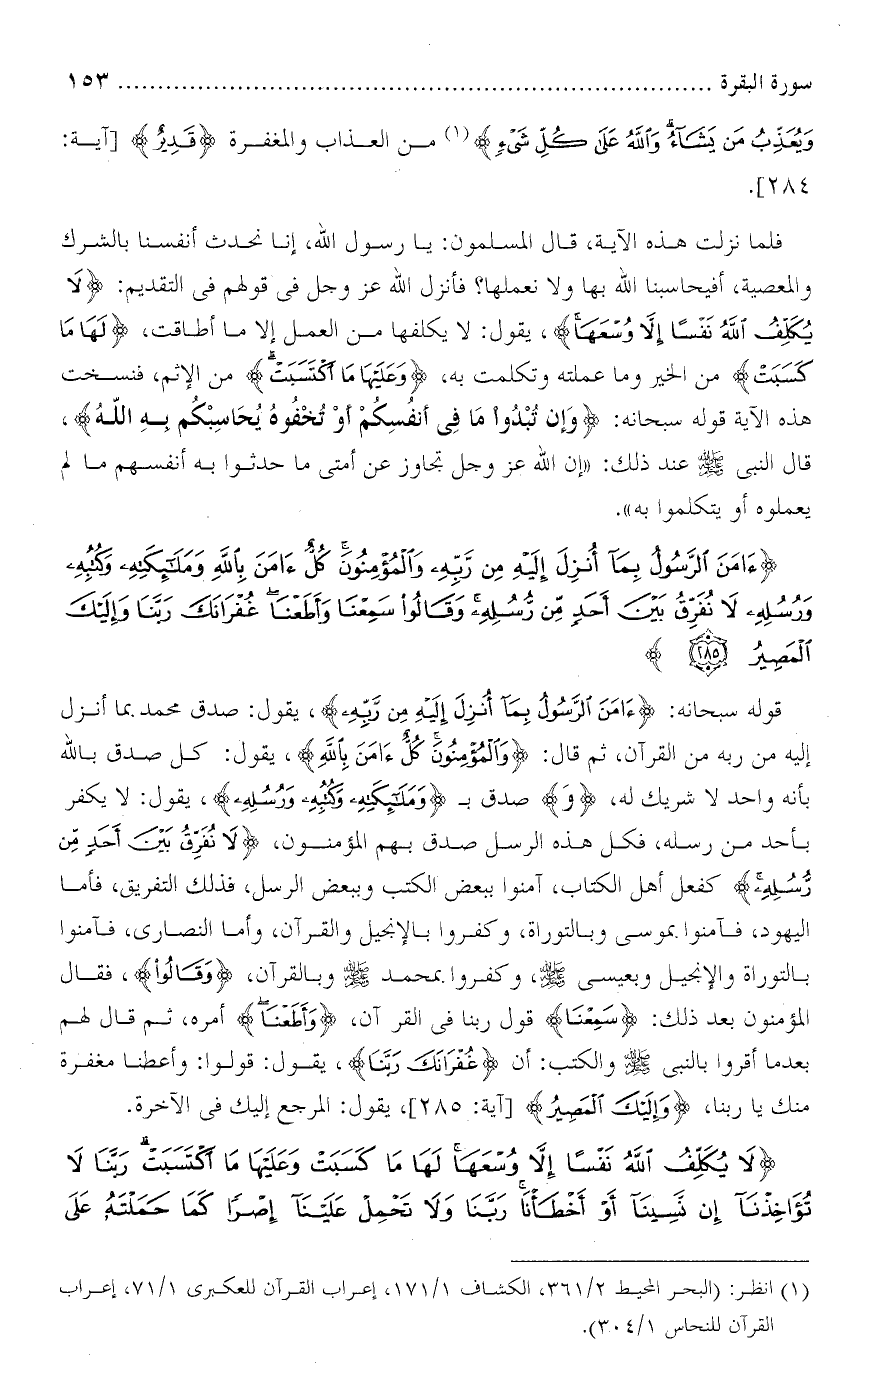 سورة البقرة ........................................................................ ١٥٣
وَيُعَذِّبُ مَن يَشَآءُ وَٱللَّهُ عَلَىٰ كُلِّ شَىْءٍ﴾(١) مـن العـذاب والمغفـرة ﴿قَدِيرٌ﴾ [آيـة:
٢٨٤].
فلما نزلت هـذه الآيـة، قـال المسـلمون: يـا رسـول الله، إنـا نحـدث أنفسـنا بالشـرك
والمعصية، أفيحاسبنا الله بها ولا نعملها؟ فأنزل الله عز وجل فى قولهم فى التقديم: ﴿لَا
يُكَلِّفُ ٱللَّهُ نَفْسًا إِلَّا وُسْعَهَا﴾، يقول: لا يكلفها مـن العمـل إلا مـا أطـاقت، ﴿لَهَا مَا
كَسَبَتْ﴾ من الخير وما عملته وتكلمت به، ﴿وَعَلَيْهَا مَا ٱكْتَسَبَتْ﴾ من الإثم، فنسـخت
هذه الآية قوله سبحانه: ﴿وَإِن تُبْدُواْ مَا فِى أَنفُسِكُمْ أَوْ تُخْفُوهُ يُحَاسِبْكُم بِـهِ اللَّـهُ﴾،
قال النبى ﷺ عند ذلك: «إن الله عز وجل تجاوز عن أمتى ما حدثـوا بـه أنفسـهم مـا لم
يعملوه أو يتكلموا به».
﴿ءَامَنَ ٱلرَّسُولُ بِمَآ أُنزِلَ إِلَيْهِ مِن رَّبِّهِۦ وَٱلْمُؤْمِنُونَ كُلٌّ ءَامَنَ بِٱللَّهِ وَمَلَـٰٓئِكَتِهِۦ وَكُتُبِهِۦ
وَرُسُلِهِۦ لَا نُفَرِّقُ بَيْنَ أَحَدٍ مِّن رُّسُلِهِۦ وَقَالُوا۟ سَمِعْنَا وَأَطَعْنَا غُفْرَانَكَ رَبَّنَا وَإِلَيْكَ
ٱلْمَصِيرُ ٢٨٥ ﴾
قوله سبحانه: ﴿ءَامَنَ ٱلرَّسُولُ بِمَآ أُنزِلَ إِلَيْهِ مِن رَّبِّهِۦ﴾، يقول: صدق محمد بما أنـزل
إليه من ربه من القرآن، ثم قال: ﴿وَٱلْمُؤْمِنُونَ كُلٌّ ءَامَنَ بِٱللَّهِ﴾، يقول: كـل صـدق بـالله
بأنه واحد لا شريك له، ﴿وَ﴾ صدق بـ ﴿وَمَلَـٰٓئِكَتِهِۦ وَكُتُبِهِۦ وَرُسُلِهِۦ﴾، يقول: لا يكفر
بـأحد مـن رسـله، فكـل هـذه الرسـل صـدق بـهم المؤمنـون، ﴿لَا نُفَرِّقُ بَيْنَ أَحَدٍ مِّن
رُّسُلِهِۦ﴾ كفعل أهل الكتاب، آمنوا ببعض الكتب وببعض الرسل، فذلك التفريق، فأمـا
اليهود، فـآمنوا بموسـى وبـالتوراة، وكفـروا بـالإنجيل والقـرآن، وأمـا النصـارى، فـآمنوا
بـالتوراة والإنجيـل وبعيسـى ﷺ، وكفـروا بمحمـد ﷺ وبـالقرآن، ﴿وَقَالُوا۟﴾، فقـال
المؤمنون بعد ذلك: ﴿سَمِعْنَا﴾ قول ربنا فى القر آن، ﴿وَأَطَعْنَا﴾ أمره، ثـم قـال لهـم
بعدما أقروا بالنبى ﷺ والكتب: أن ﴿غُفْرَانَكَ رَبَّنَا﴾، يقـول: قولـوا: وأعطنـا مغفـرة
منك يا ربنا، ﴿وَإِلَيْكَ ٱلْمَصِيرُ﴾ [آية: ٢٨٥]، يقول: المرجع إليك فى الآخرة.
﴿لَا يُكَلِّفُ ٱللَّهُ نَفْسًا إِلَّا وُسْعَهَا لَهَا مَا كَسَبَتْ وَعَلَيْهَا مَا ٱكْتَسَبَتْ رَبَّنَا لَا
تُؤَاخِذْنَآ إِن نَّسِينَآ أَوْ أَخْطَأْنَا رَبَّنَا وَلَا تَحْمِلْ عَلَيْنَآ إِصْرًا كَمَا حَمَلْتَهُۥ عَلَى
(١) انظـر: (البحـر المحيـط ٣٦١/٢، الكشـاف ١٧١/١، إعـراب القـرآن للعكـبرى ٧١/١، إعـراب
القرآن للنحاس ٣٠٤/١).